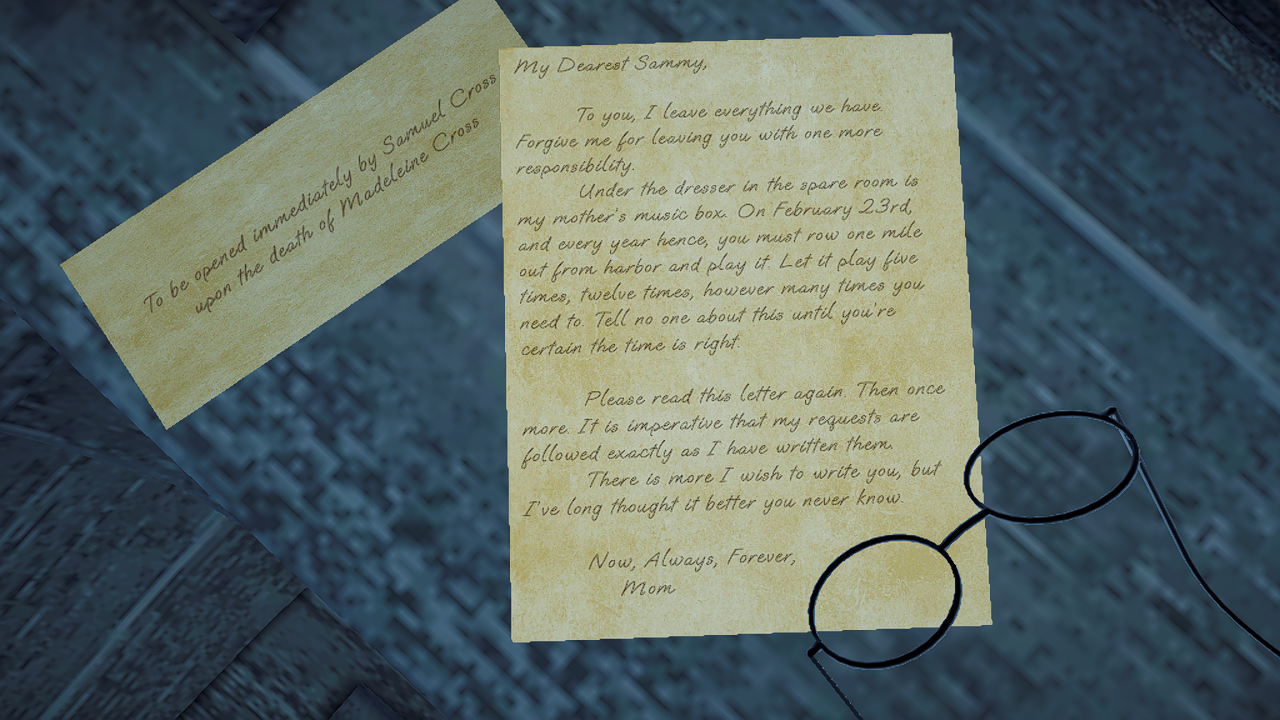 To be opened immediately by Samuel Cross
upon the death of Madeleine Cross
My Dearest Sammy,
To you, I leave everything we have.
Forgive me for leaving you with one more
responsibility.
Under the dresser in the spare room is
my mother's music box. On February 23rd,
and every year hence, you must row one mile
out from harbor and play it. Let it play five
times, twelve times, however many times you
need to. Tell no one about this until you're
certain the time is right.
Please read this letter again. Then once
more. It is imperative that my requests are
followed exactly as I have written them.
There is more I wish to write you, but
I've long thought it better you never know.
Now, Always, Forever,
Mom